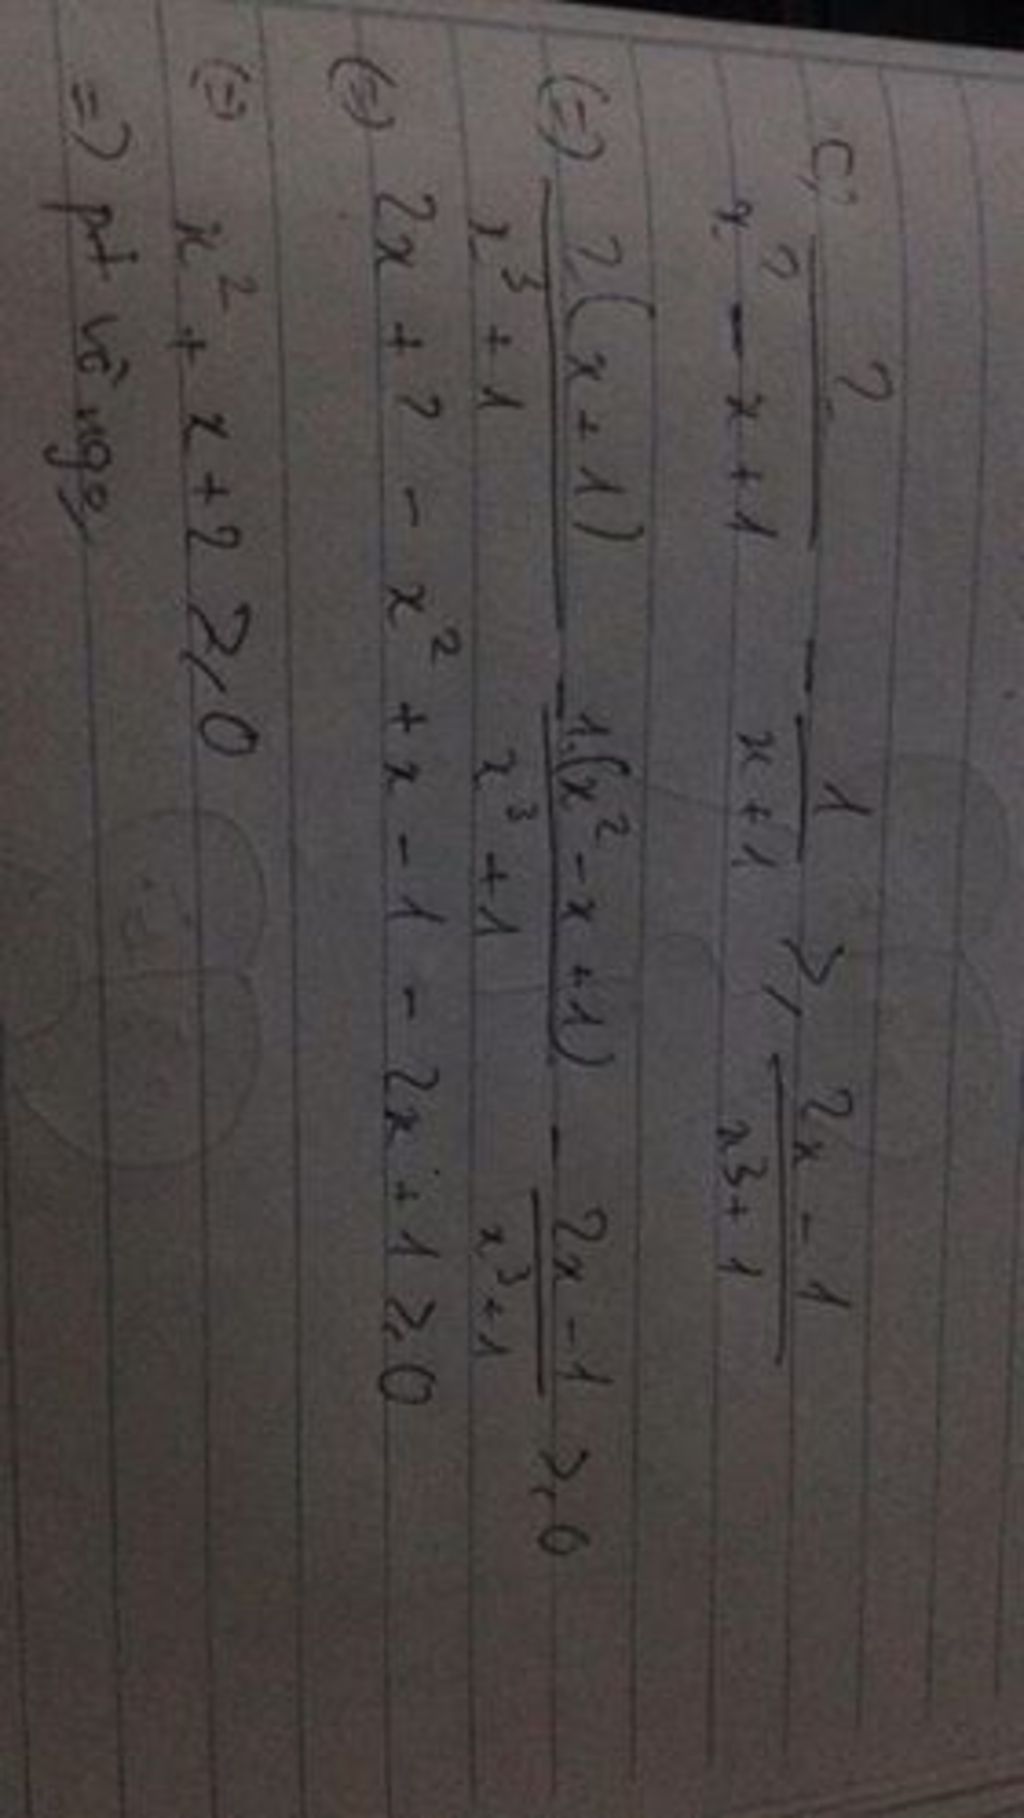 c, 2/(x² - x + 1) - 1/(x + 1) ≥ (2x - 1)/(x³ + 1)
(=) 2(x + 1)/(x³ + 1) - 1.(x² - x + 1)/(x³ + 1) - (2x - 1)/(x³ + 1) ≥ 0
(=) 2x + 2 - x² + x - 1 - 2x + 1 ≥ 0
(=) x² + x + 2 ≥ 0
=) pt vô ngo